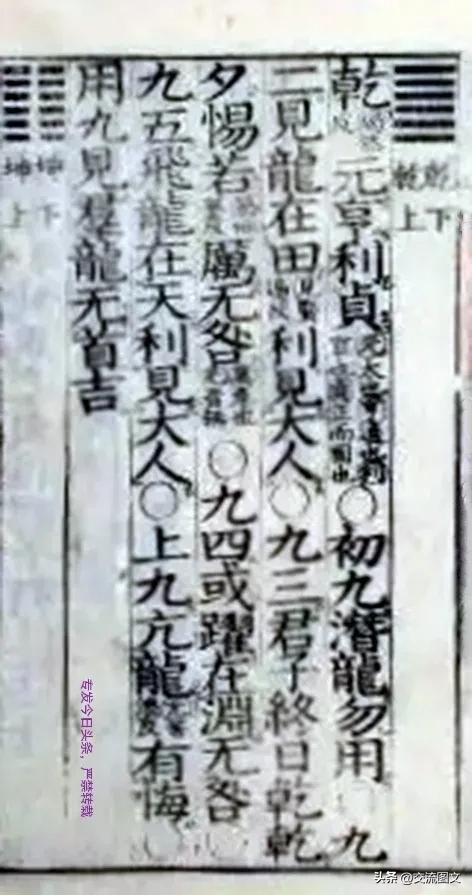 乾下
乾上
乾元亨利貞正而固也〇初九潛龍勿用 九
二見龍在田利見大人〇九三君子終日乾乾
夕惕若厲无咎〇九四或躍在淵无咎
九五飛龍在天利見大人〇上九亢龍有悔
用九見羣龍无首吉
坤下
坤上
专发今日头条，严禁转载
头条 @交流图文